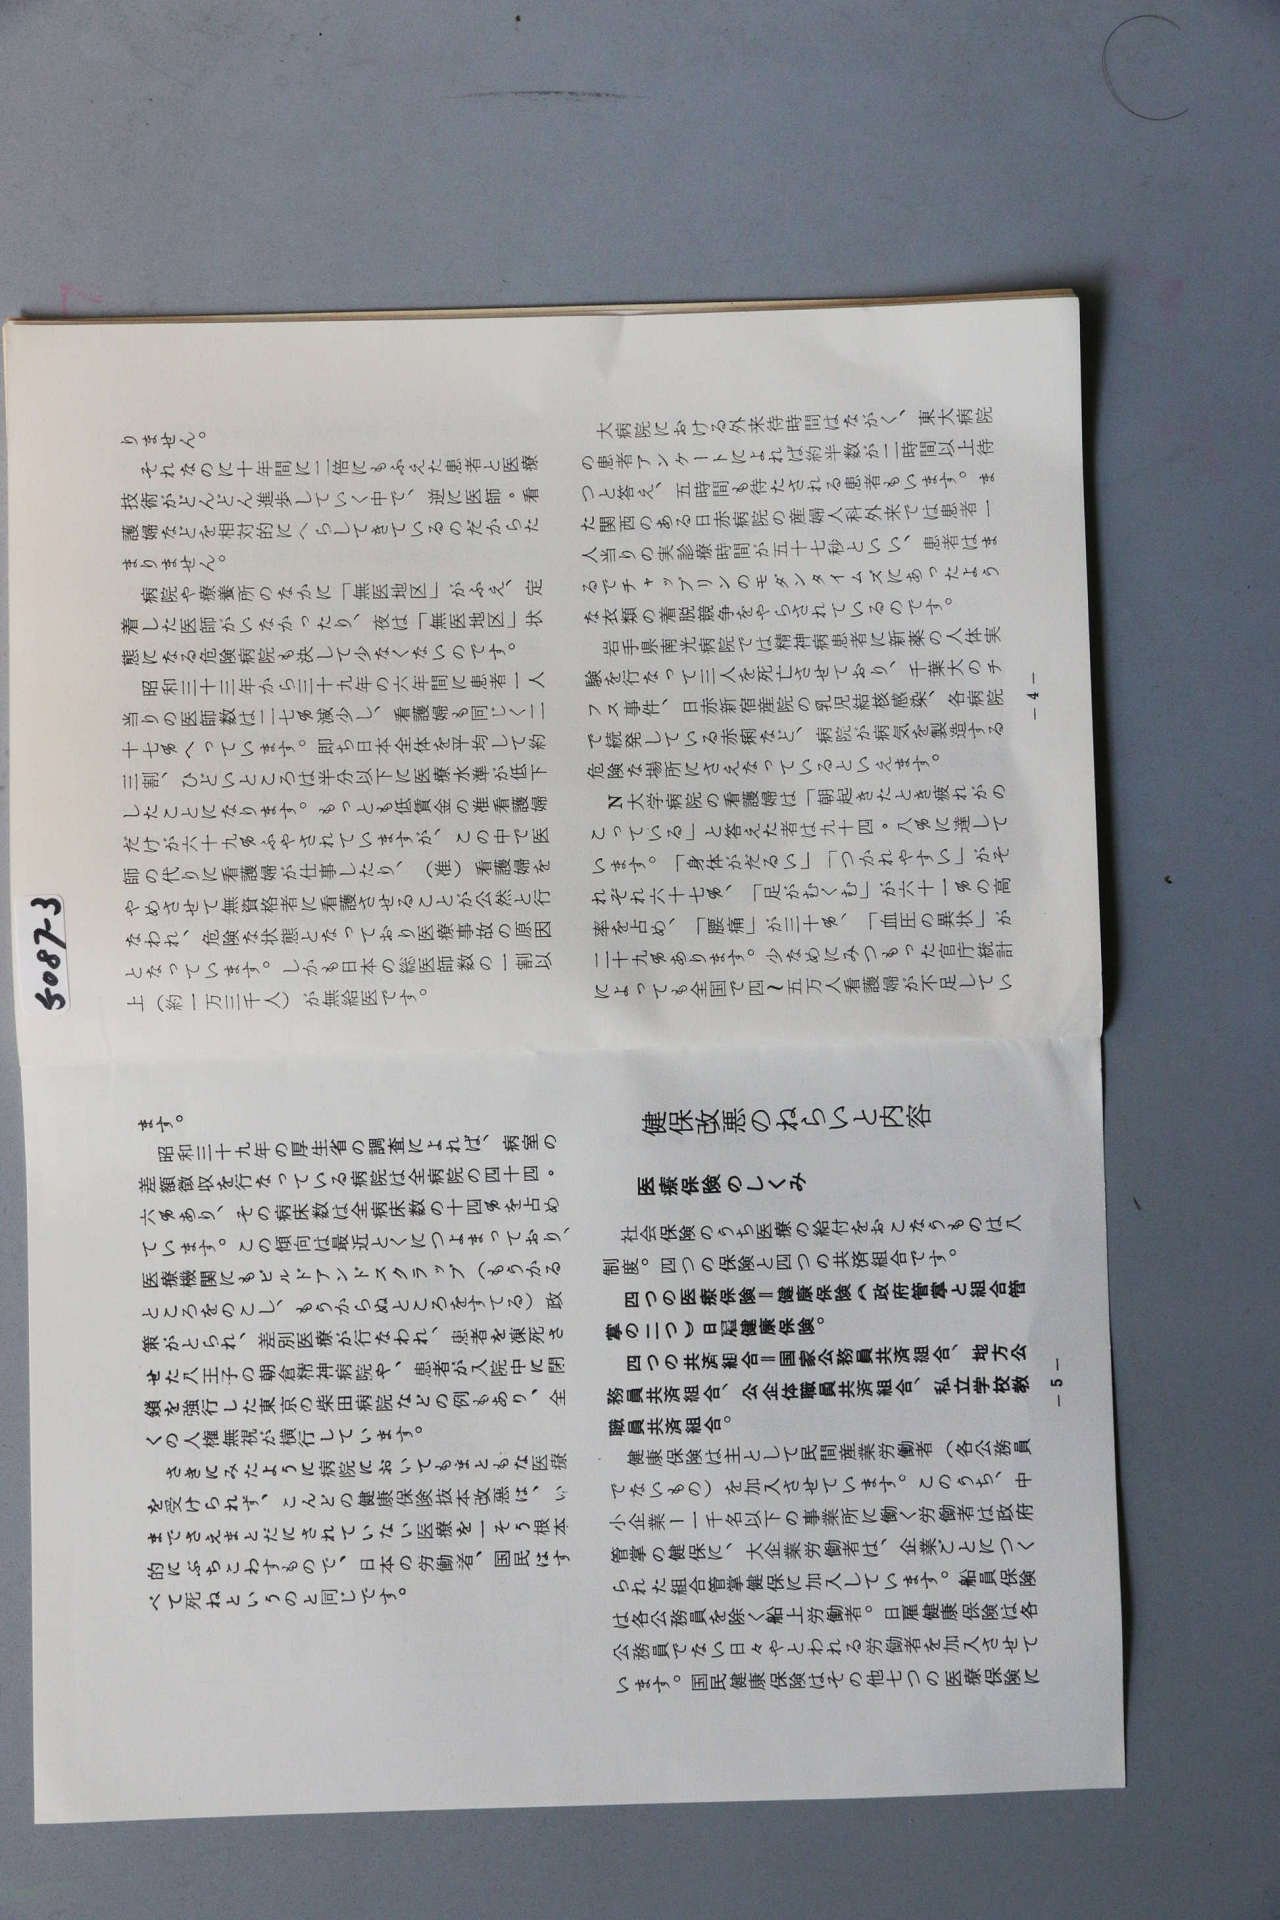 りません。
それなのに十年間に二倍にもふえた患者と医療
技術がどんどん進歩していく中で、逆に医師。看
護婦などを相対的にへらしてきているのだからた
まりません。
病院や療養所のなかに「無医地区」がふえ、定
着した医師がいなかったり、夜は「無医地区」状
態になる危険病院も決して少なくないのです。
昭和三十三年から三十九年の六年間に患者一人
当りの医師数は二七％減少し、看護婦も同じく二
十七％へっています。即ち日本全体を平均して約
三割、ひどいところは半分以下に医療水準が低下
したことになります。もっとも低賃金の准看護婦
だけが六十九％ふやされていますが、この中で医
師の代りに看護婦が仕事したり、（准）看護婦を
やめさせて無資格者に看護させることが公然と行
なわれ、危険な状態となっており医療事故の原因
となっています。しかも日本の総医師数の一割以
上（約一万三千人）が無給医です。
大病院における外来待時間はながく、東大病院
の患者アンケートによれば約半数が二時間以上待
つと答え、五時間も待たされる患者もいます。ま
た関西のある日赤病院の産婦人科外来では患者一
人当りの実診療時間が五十七秒といい、患者はま
るでチャップリンのモダンタイムズにあったよう
な衣類の着脱競争をやらされているのです。
岩手県南光病院では精神病患者に新薬の人体実
験を行なって三人を死亡させており、千葉大のチ
フス事件、日赤新宿産院の乳児結核感染、各病院
で続発している赤痢など、病院が病気を製造する
危険な場所にさえなっているといえます。
N大学病院の看護婦は「朝起きたとき疲れがの
こっている」と答えた者は九十四。八％に達して
います。「身体がだるい」「つかれやすい」がそ
れぞれ六十七％、「足がむくむ」が六十一％の高
率を占め、「腰痛」が三十％、「血圧の異状」が
二十九％あります。少なめにみつもった官庁統計
によっても全国で四〜五万人看護婦が不足してい
－4－
ます。
昭和三十九年の厚生省の調査によれば、病室の
差額徴収を行なっている病院は全病院の四十四。
六％あり、その病床数は全病床数の十四％を占め
ています。この傾向は最近とくにつよまっており、
医療機関にもビルドアンドスクラップ（もうかる
ところをのこし、もうからぬところをすてる）政
策がとられ、差別医療が行なわれ、患者を凍死さ
せた八王子の朝倉精神病院や、患者が入院中に閉
鎖を強行した東京の柴田病院などの例もあり、全
くの人権無視が横行しています。
さきにみたように病院においてもまともな医療
を受けられず、こんどの健康保険抜本改悪は、い
までさえまとだにされていない医療を一そう根本
的にぶちこわすもので、日本の労働者、国民はす
べて死ねというのと同じです。
健保改悪のねらいと内容
医療保険のしくみ
社会保険のうち医療の給付をおこなうものは八
制度。四つの保険と四つの共済組合です。
四つの医療保険＝健康保険（政府管掌と組合管
掌の二つ）日雇健康保険。
四つの共済組合＝国家公務員共済組合、地方公
務員共済組合、公企体職員共済組合、私立学校教
職員共済組合。
健康保険は主として民間産業労働者（各公務員
でないもの）を加入させています。このうち、中
小企業ー一千名以下の事業所に働く労働者は政府
管掌の健保に、大企業労働者は、企業ごとにつく
られた組合管掌健保に加入しています。船員保険
は各公務員を除く船上労働者。日雇健康保険は各
公務員でない日々やとわれる労働者を加入させて
います。国民健康保険はその他七つの医療保険に
－5－
5087-3